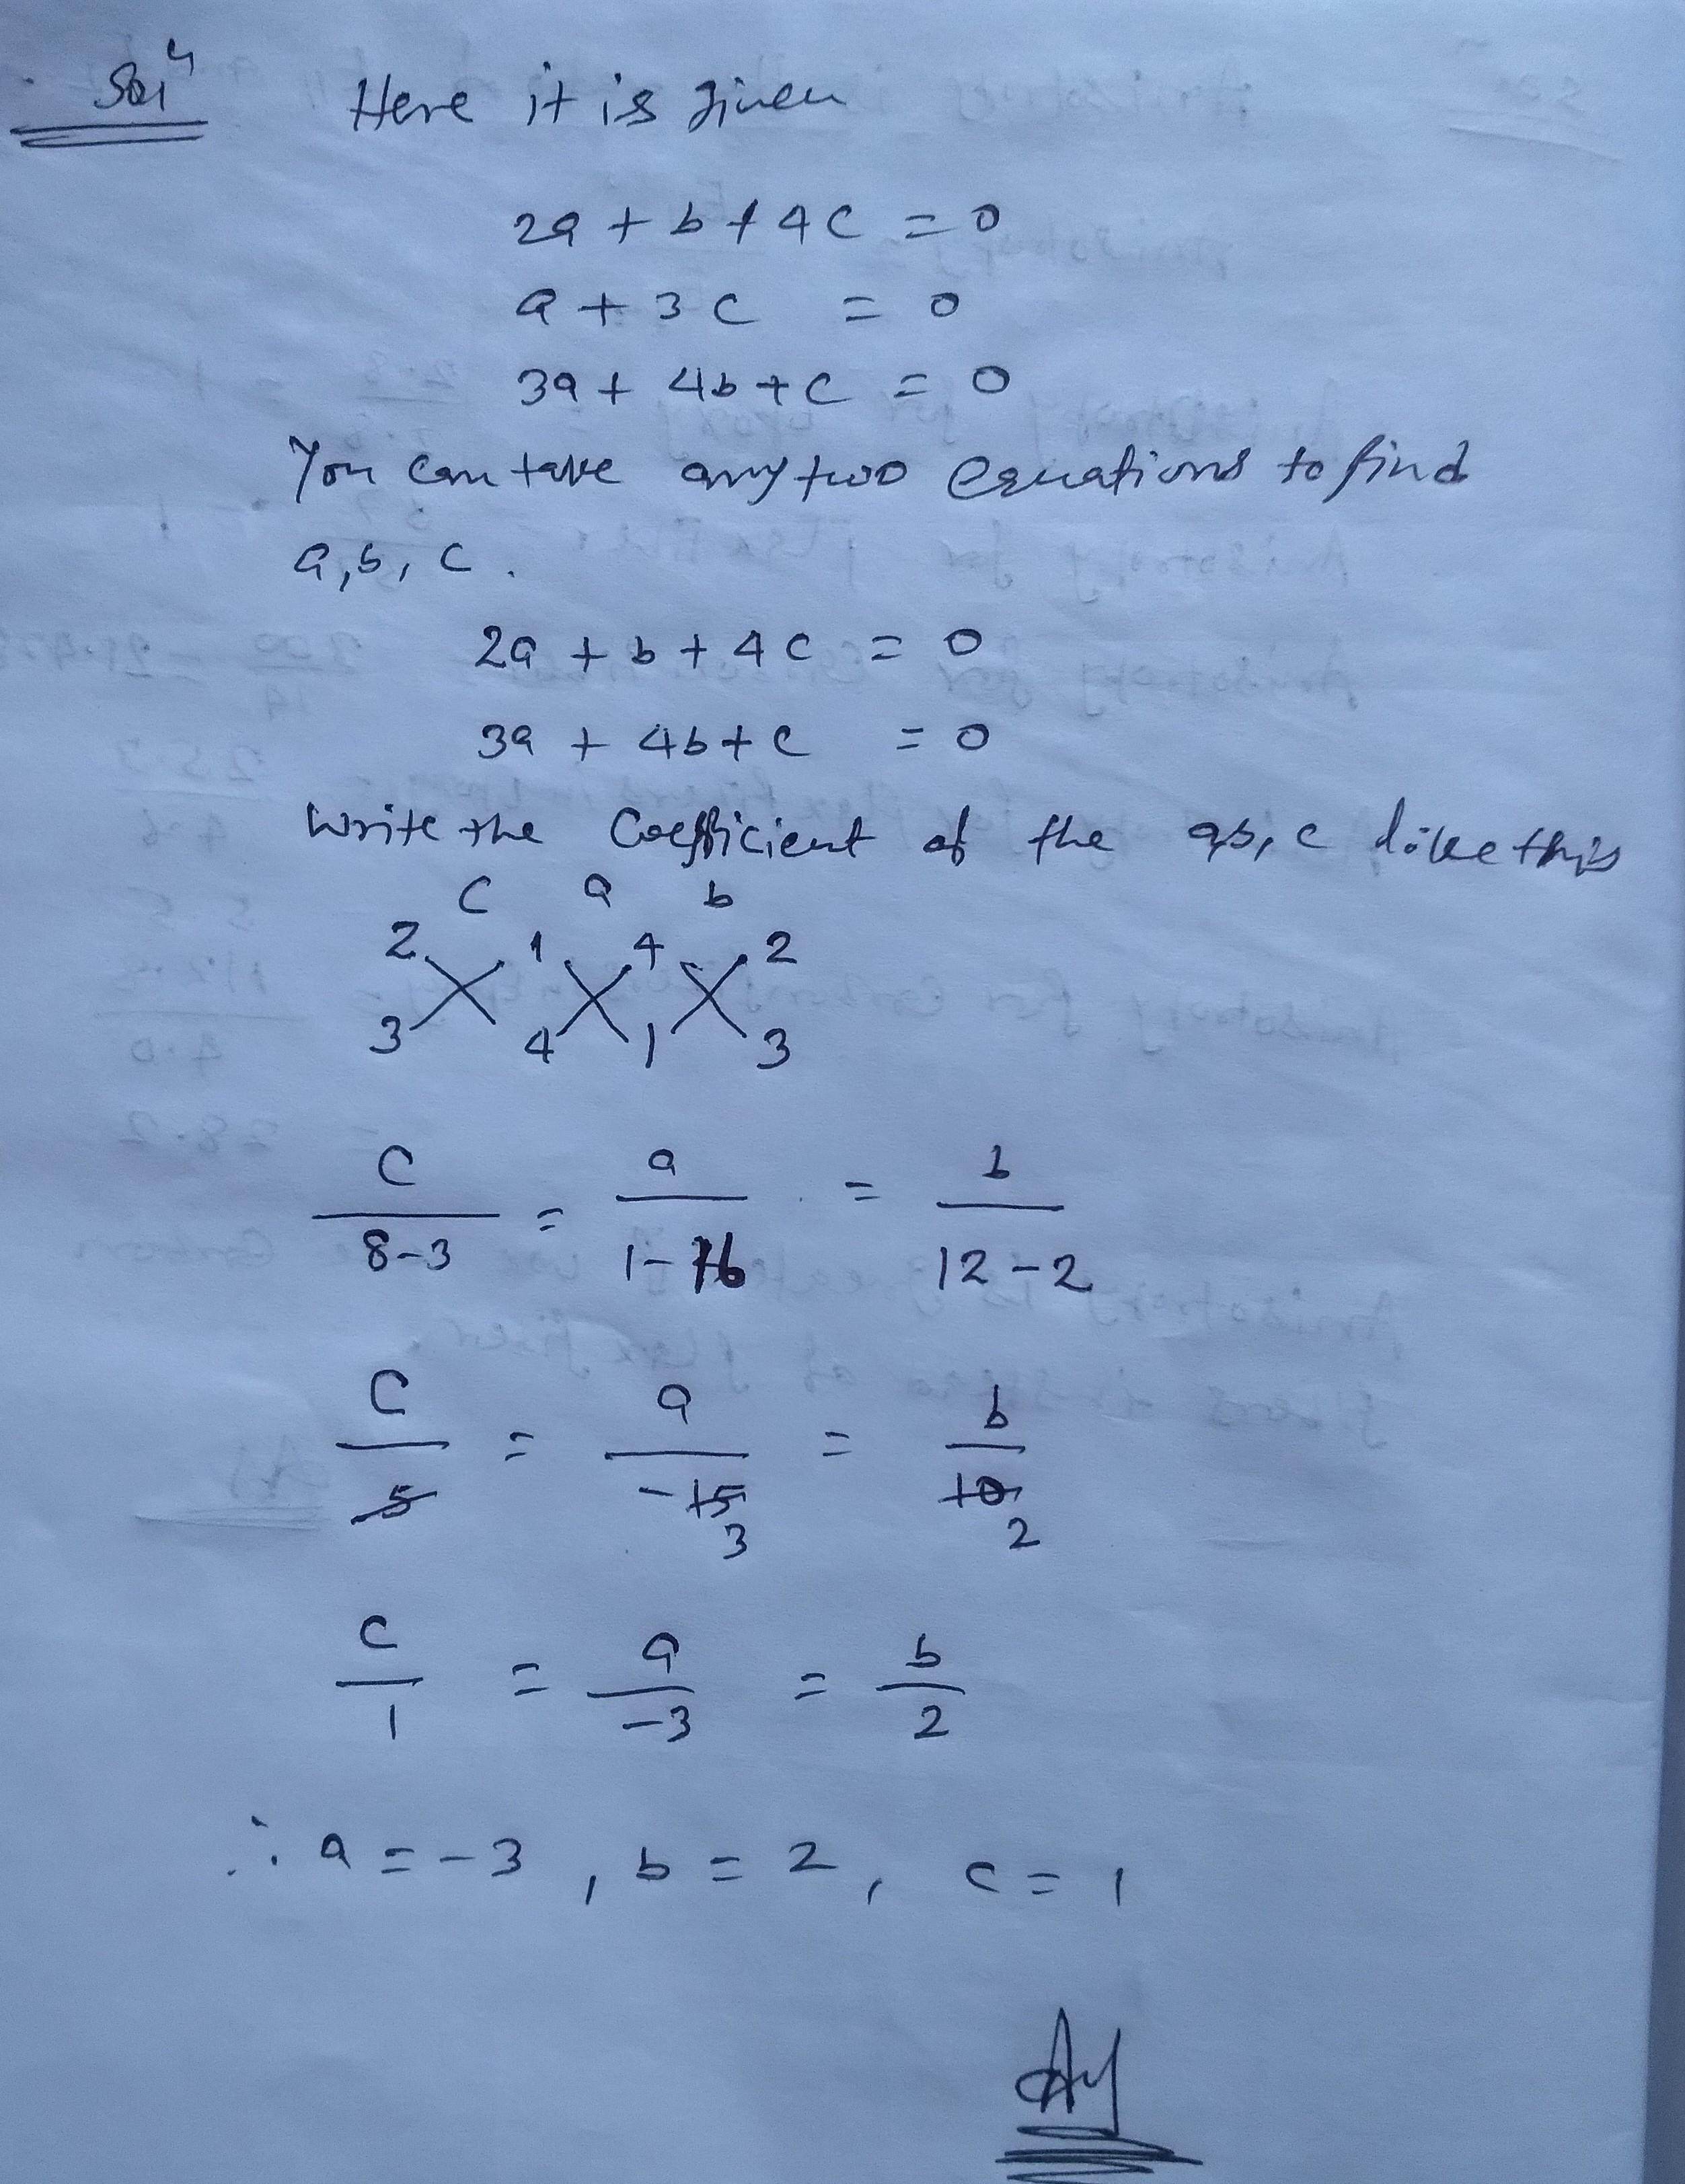 Soln Here it is given
2a + b + 4c = 0
a + 3c = 0
3a + 4b + c = 0
You can take any two equations to find
a, b, c.
2a + b + 4c = 0
3a + 4b + c = 0
Write the Coefficient of the a,b, c like this
c a b
2 1 4 2
3 4 1 3
c/8-3 = a/1-16 = b/12-2
c/5 = a/-15 = b/10
3 2
c/1 = a/-3 = b/2
∴ a = -3, b = 2, c = 1